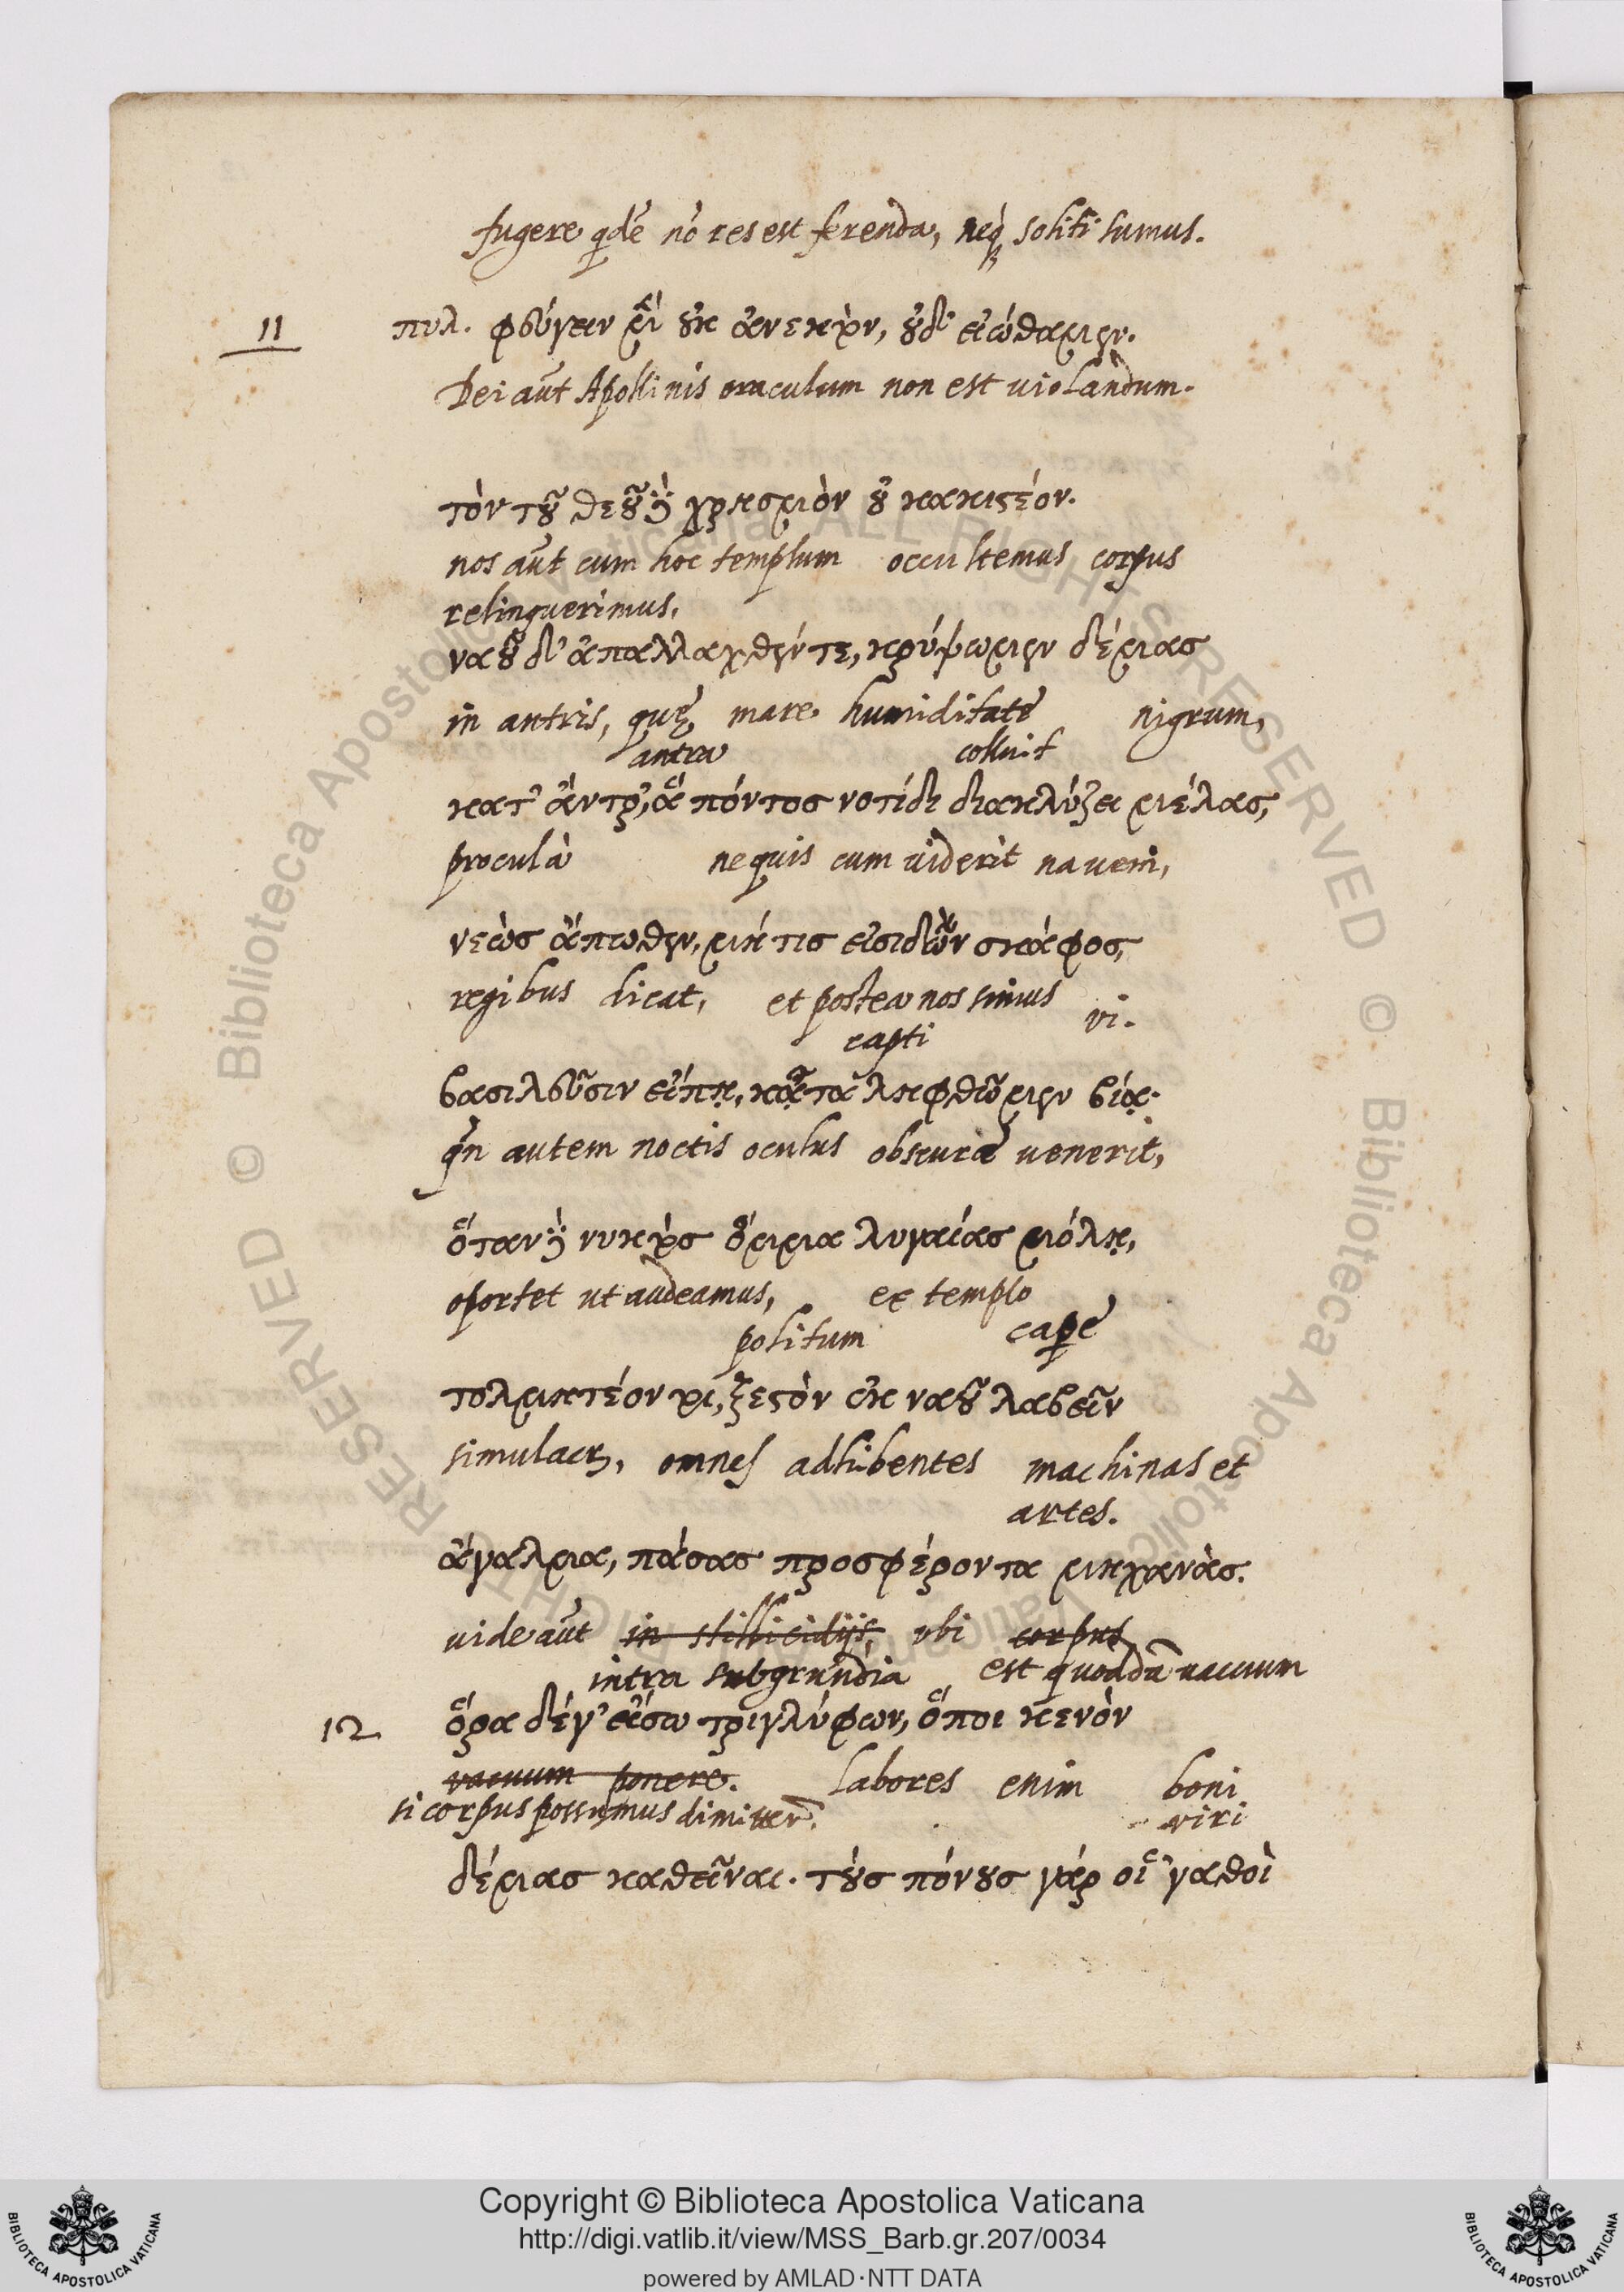 fugere qdē nō res est ferenda, neq soliti sumus.
11 πυλ. φεύγειν μὲν οὐκ ἀνεκτὸν, οὐδ' εἰώθαμεν.
Dei aūt Apollinis oraculum non est uiolandum.
τὸν τοῦ θεοῦ δὲ χρησμὸν οὐ κακιστέον.
nos aūt cum hoc templum occultemus corpus
relinquerimus,
ναοῦ δ' ἀπαλλαχθέντε, κρύψωμεν δέμας
in antris, quę mare humiditate nigrum,
antra colluit
κατ' ἄντρ', ἃ πόντος νοτίδι διακλύζει μέλας,
procul à nequis cum uiderit nauem,
νεὼς ἄπωθεν, μή τις εἰσιδὼν σκάφος,
regibus dicat, et postea nos simus vi.
capti
βασιλεῦσιν εἴπῃ, κᾆτα ληφθῶμεν βίᾳ.
qn autem noctis oculus obscuræ uenerit,
ὅταν δὲ νυκτὸς ὄμμα λυγαίας μόλῃ,
oportet ut audeamus, ex templo
politum capē
τολμητέον τοι, ξεστὸν ἐκ ναοῦ λαβεῖν
simulacr, omnes adhibentes machinas et
artes.
ἄγαλμα, πάσας προσφέροντα μηχανάς.
uide aūt in stillicidijs, ubi corpus
intra subgrundia est quoddā uacuum
12 ὅρα δέ γ' εἴσω τριγλύφων, ὅποι κενὸν
vacuum ponere. labores enim boni
si corpus possumus dimitter. viri
δέμας καθεῖναι. τοὺς πόνους γάρ οἱ 'γαθοὶ
Copyright © Biblioteca Apostolica Vaticana
http://digi.vatlib.it/view/MSS_Barb.gr.207/0034
powered by AMLAD·NTT DATA